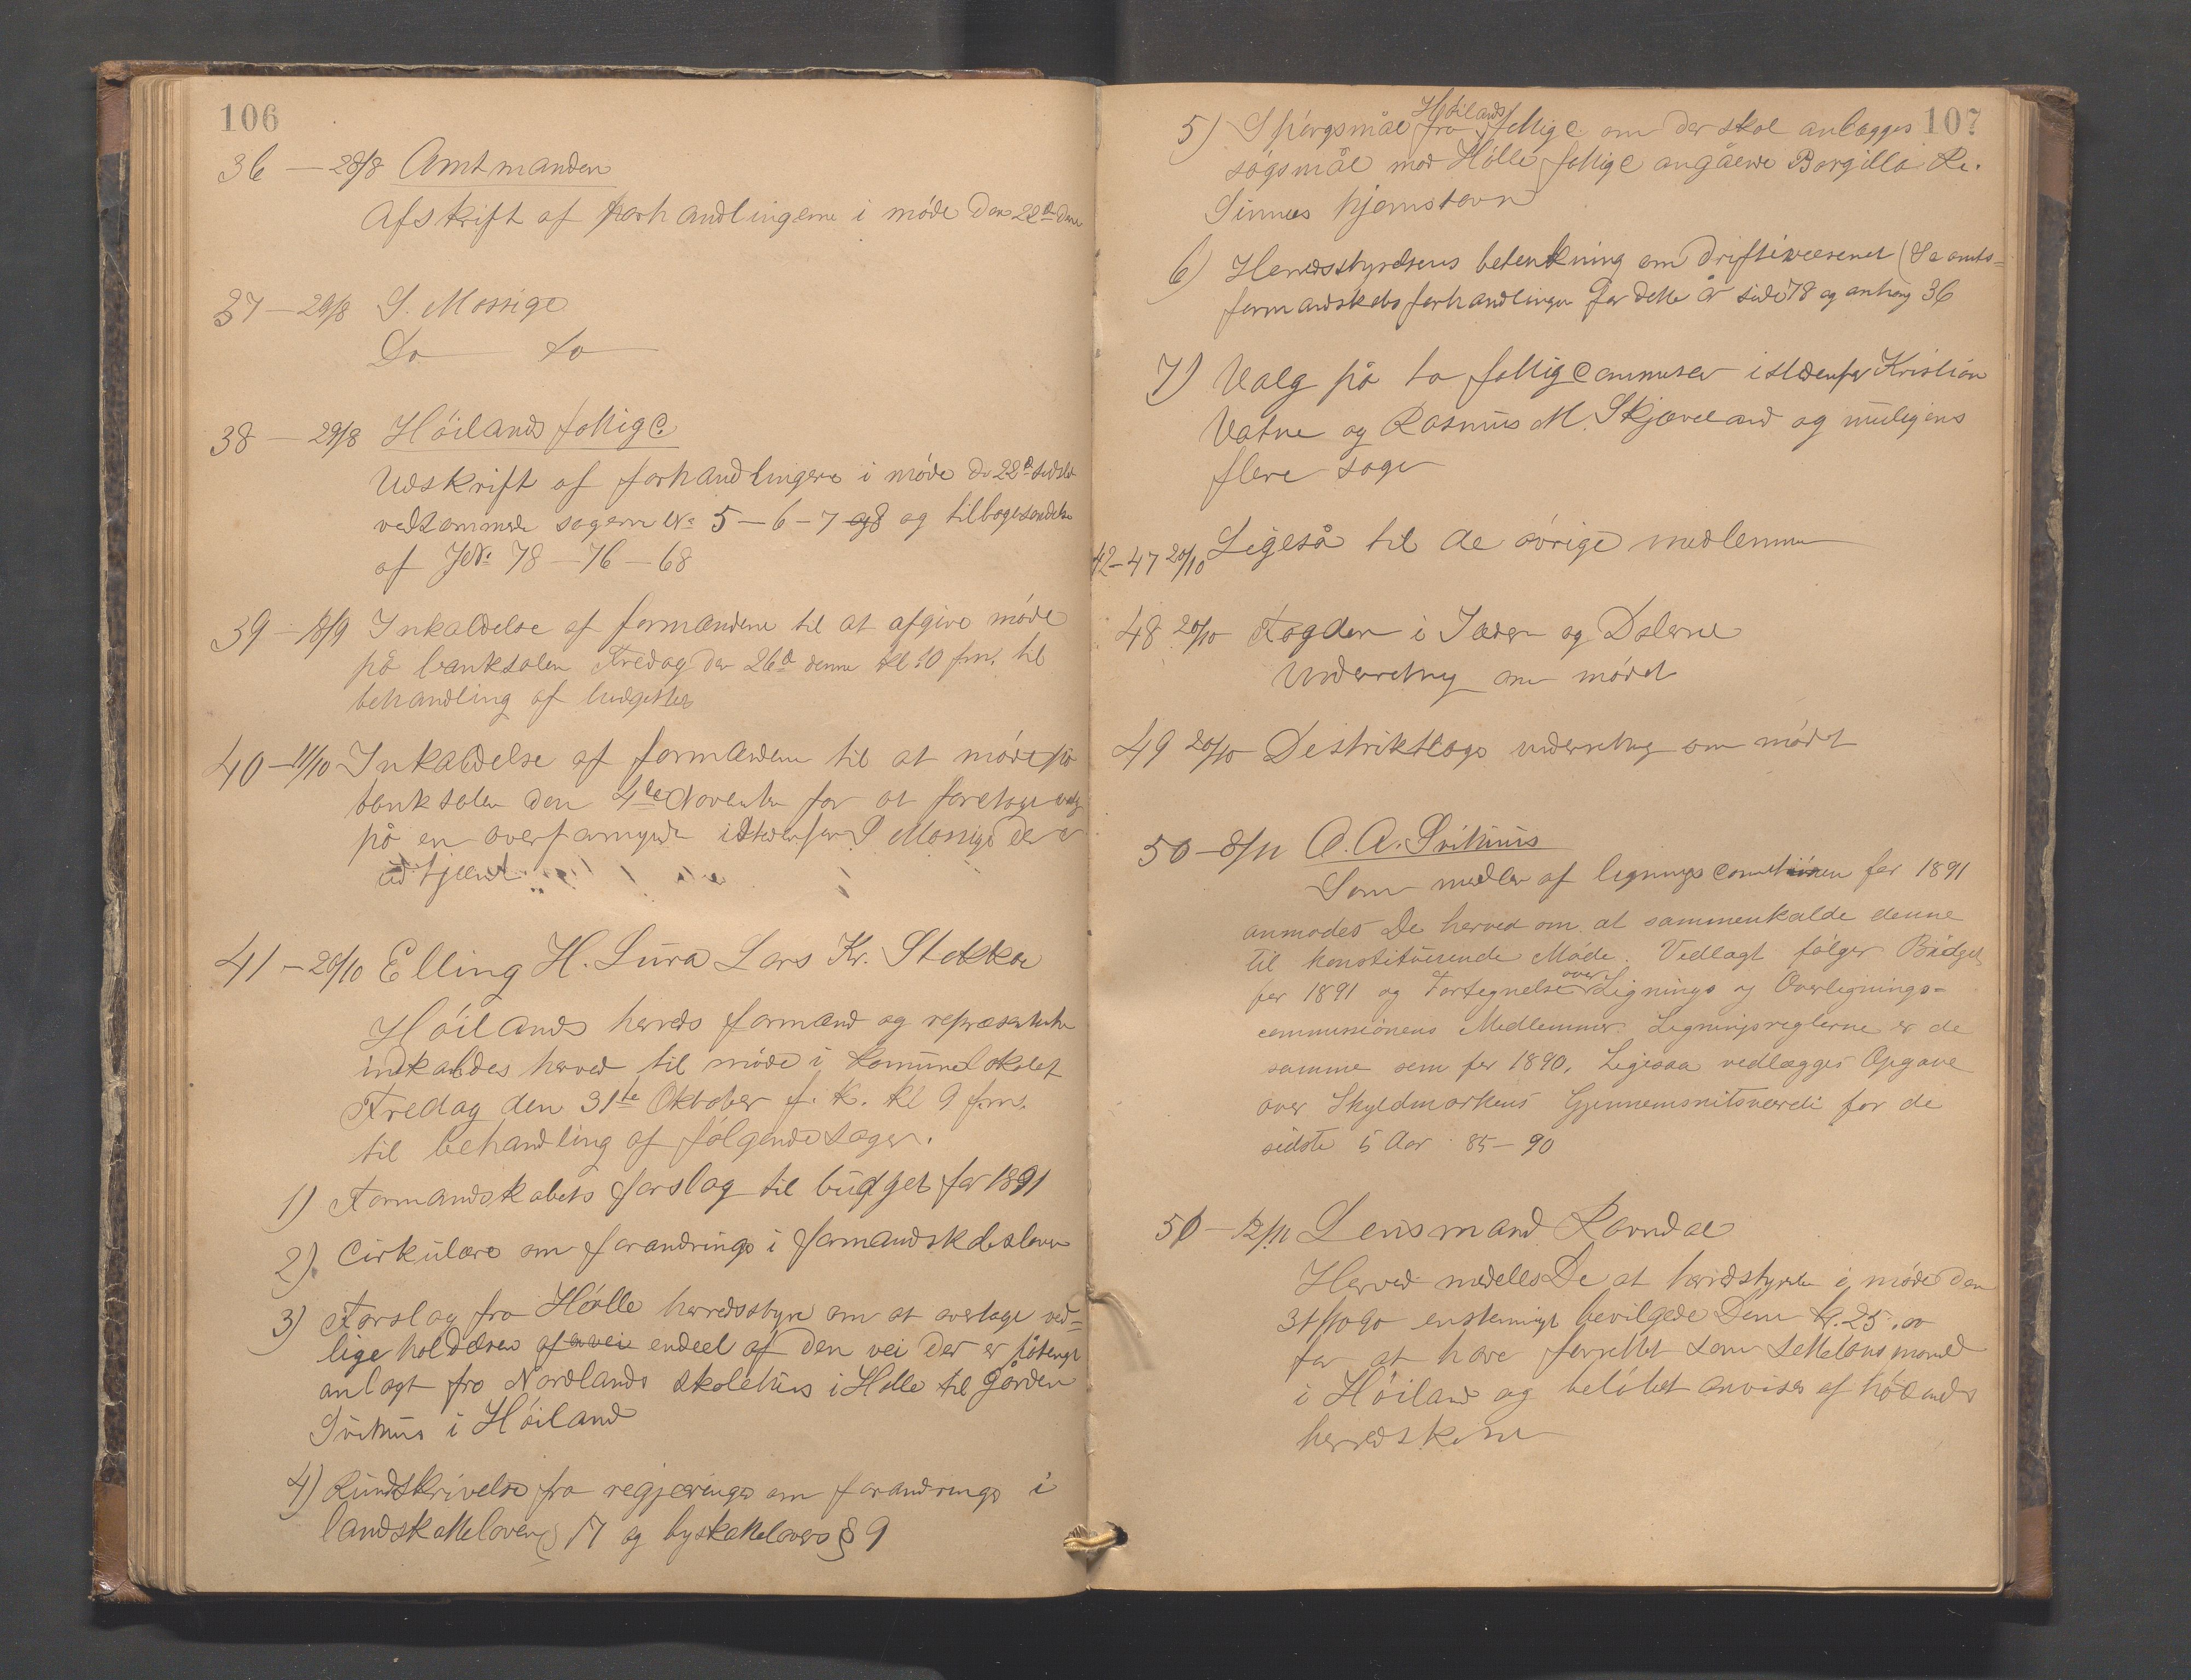 106
36 — 28/8 Amtmanden
Afskrift af forhandlingerne i møde den 22de dne
37 — 29/8 S. Mossige
Do — do —
38 — 29/8 Høilands fattigc.
Udskrift af forhandlingerne i møde d. 22d sidstl.
vedkommende sagerne No 5 — 6 — 7 og 8 og tilbagesendelse
af JNo 78 — 76 — 68
39 — 18/9 Inkaldelse af formændene til at afgive møde
på banksalen Fredag den 26d denne kl. 10 fm. til
behandling af budgetter
40 — 11/10 Inkaldelse af formændene til at møde på
banksalen den 4de November for at foretage valg
på en overformynder istedenfor S Mossige der er
udtjent
41 — 20/10 Elling H. Lura Lars Kr. Stokka
Høilands herreds formænd og repræsentanter
indkaldes herved til møde i komunelokalet
Fredag den 31te Oktober f. k. kl 9 fm.
til behandling af følgende sager.
1) Formandskabets forslag til budget for 1891
2) Cirkulære om forandringe i formandskabsloven
3) Forslag fra Hølle herredsstyre om at overtage ved=
ligeholdelsen af en vei endeel af den vei der er påtengt
anlagt fra Nordlands skolehus i Hølle til gården
Svihus i Høiland
4) Rundskrivelse fra regjeringe om forandringe i
landskatteloven § 17 og byskattelovens § 9
107
5) Spørgsmål fra Høilands fattigc. om der skal anlægges
søgsmål mod Hølle fattigc angående Borgilla Re.
Sinnes hjemstavn
6) Herredsstyrelsens betenkning om driftevæsenet (Se amts=
formandskabsforhandlinger for dette år side 78 og anhang 36
7) Valg på to fattigcommiser istedenfor Kristian
Vatne og Rasmus M. Skjæveland og muligens
flere sager
42—47 20/10 Ligeså til de øvrige medlemmer
48 20/10 Fogden i Jæderen og Dalerne
Underretning om mødet
49 20/10 Destriktlæge underretning om mødet
50 — 8/11 A. A. Svihus
Som medlem af lignings comitionen for 1891
anmodes De herved om at sammenkalde denne
til konstituerende Møde. Vedlagt følger Budget
for 1891 og Fortegnelse over Lignings og Overlignings-
commissionens Medlemmer. Ligningsreglerne er de
samme som for 1890, Ligesaa vedlægges Opgave
over Skyldmarkens Gjennemsnitsværdi for de
sidste 5 Aar 85—90
51 — 12/11 Lensmand Ravndal
Herved meddeles De at herredstyrelsen i møde den
31/10 90 enstemmigt bevilgede Dem kr. 25.00
for at have forrettet som
i Høiland og beløbet anvises af Høilands
herredskasse